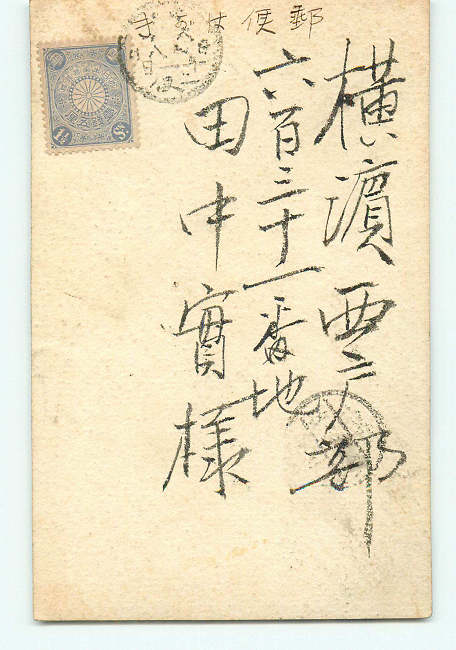 郵便は き
横濱西戸部
六百三十一番地
田中實様